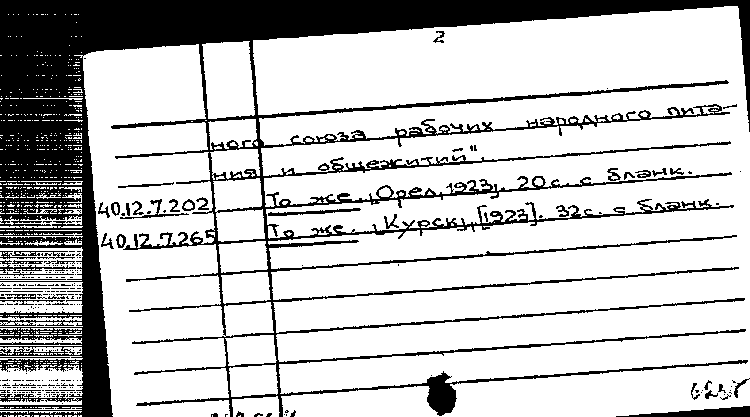 2
ного союза рабочих народного пита-
ния и общежитий".
40.12.7.202 То же. [Орел, 1923]. 20 с. с бланк.
40.12.7.265 То же. [Курск], [1923]. 32с. с бланк.